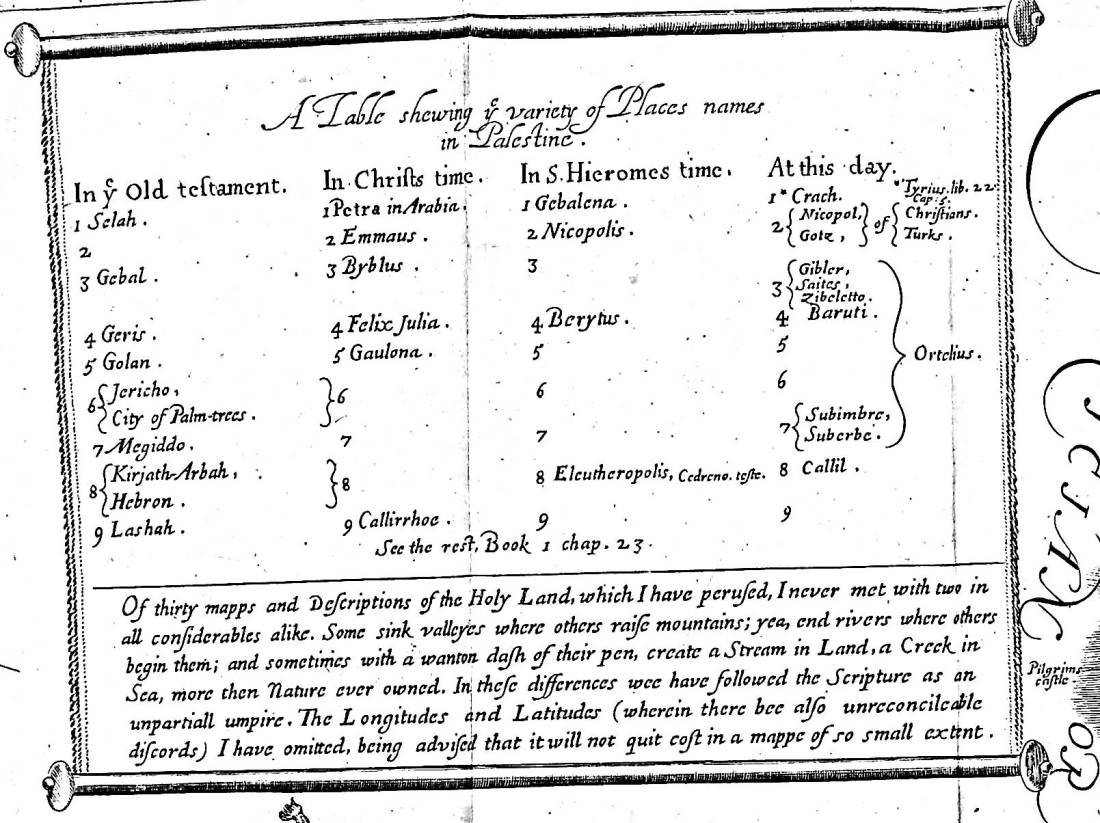 A Table shewing yᵉ variety of Places names
in Palestine.
In yᵉ Old teſtament. In Chriſts time. In S. Hieromes time. At this day.
1 Selah. 1 Petra in Arabia. 1 Gebalena. 1* Crach. *Tyrius. lib. 22. Cap. 5.
2 2 Emmaus. 2 Nicopolis. 2 { Nicopol, Gotz, } of { Chriſtians. Turks.
3 Gebal. 3 Byblus. 3 3 { Gibler, Saites, Zibeletto.
4 Geris. 4 Felix Julia. 4 Berytus. 4 Baruti.
5 Golan. 5 Gaulona. 5 5 } Ortelius.
6 { Jericho, City of Palm-trees. } 6 6 6
7 Megiddo. 7 7 7 { Subimbre, Suberbe.
8 { Kirjath-Arbah, Hebron. } 8 8 Eleutheropolis, Cedreno. teſte. 8 Callil.
9 Lashah. 9 Callirrhoe. 9 9
See the reſt, Book 1 chap. 23.
Of thirty mapps and Deſcriptions of the Holy Land, which I have peruſed, I never met with two in
all conſiderables alike. Some sink valleyes where others raiſe mountains; yea, end rivers where others
begin them; and sometimes with a wanton daſh of their pen, create a Stream in Land, a Creek in
Sea, more then Nature ever owned. In theſe differences wee have followed the Scripture as an
unpartiall umpire. The Longitudes and Latitudes (wherein there bee alſo unreconcileable
diſcords) I have omitted, being adviſed that it will not quit coſt in a mappe of so small extent.
Pilgrims
caſtle
OR